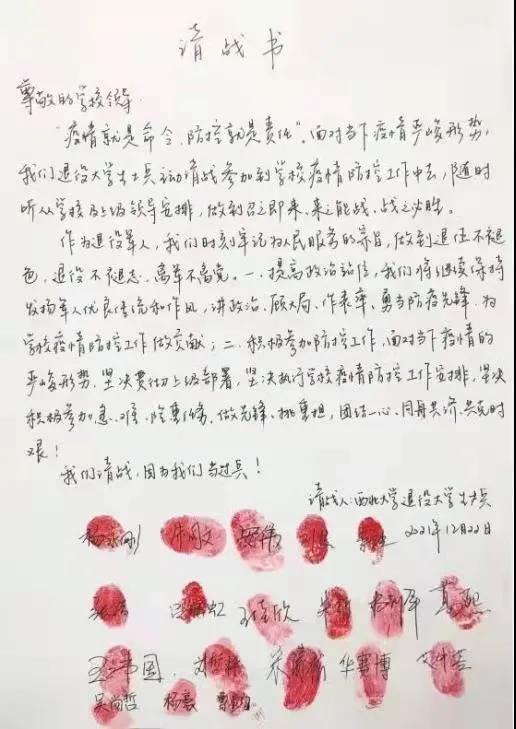 请战书
尊敬的学校领导:
“疫情就是命令,防控就是责任”。面对当下疫情严峻形势,
我们退役大学生士兵主动请战参加到学校疫情防控工作中去,随时
听从学校及上级领导安排,做到召之即来、来之能战、战之必胜。
作为退役军人,我们时刻牢记为人民服务的宗旨,做到退伍不褪
色,退役不褪志、离军不离党。一、提高政治站位,我们将继续保持
发扬军人优良传统和作风,讲政治、顾大局、作表率、勇当防疫先锋,为
学校疫情防控工作做贡献;二、积极参加防控工作,面对当下疫情的
严峻形势,坚决贯彻上级部署,坚决执行学校疫情防控工作安排,坚决
积极参加急、难、险、重任务,做先锋、挑重担,团结一心、同舟共济、共克时
艰!
我们请战,因为我们当过兵!
请战人:西北大学退役大学生士兵
2021年12月22日
王佳欣
华赛博
吴尚哲 杨豪